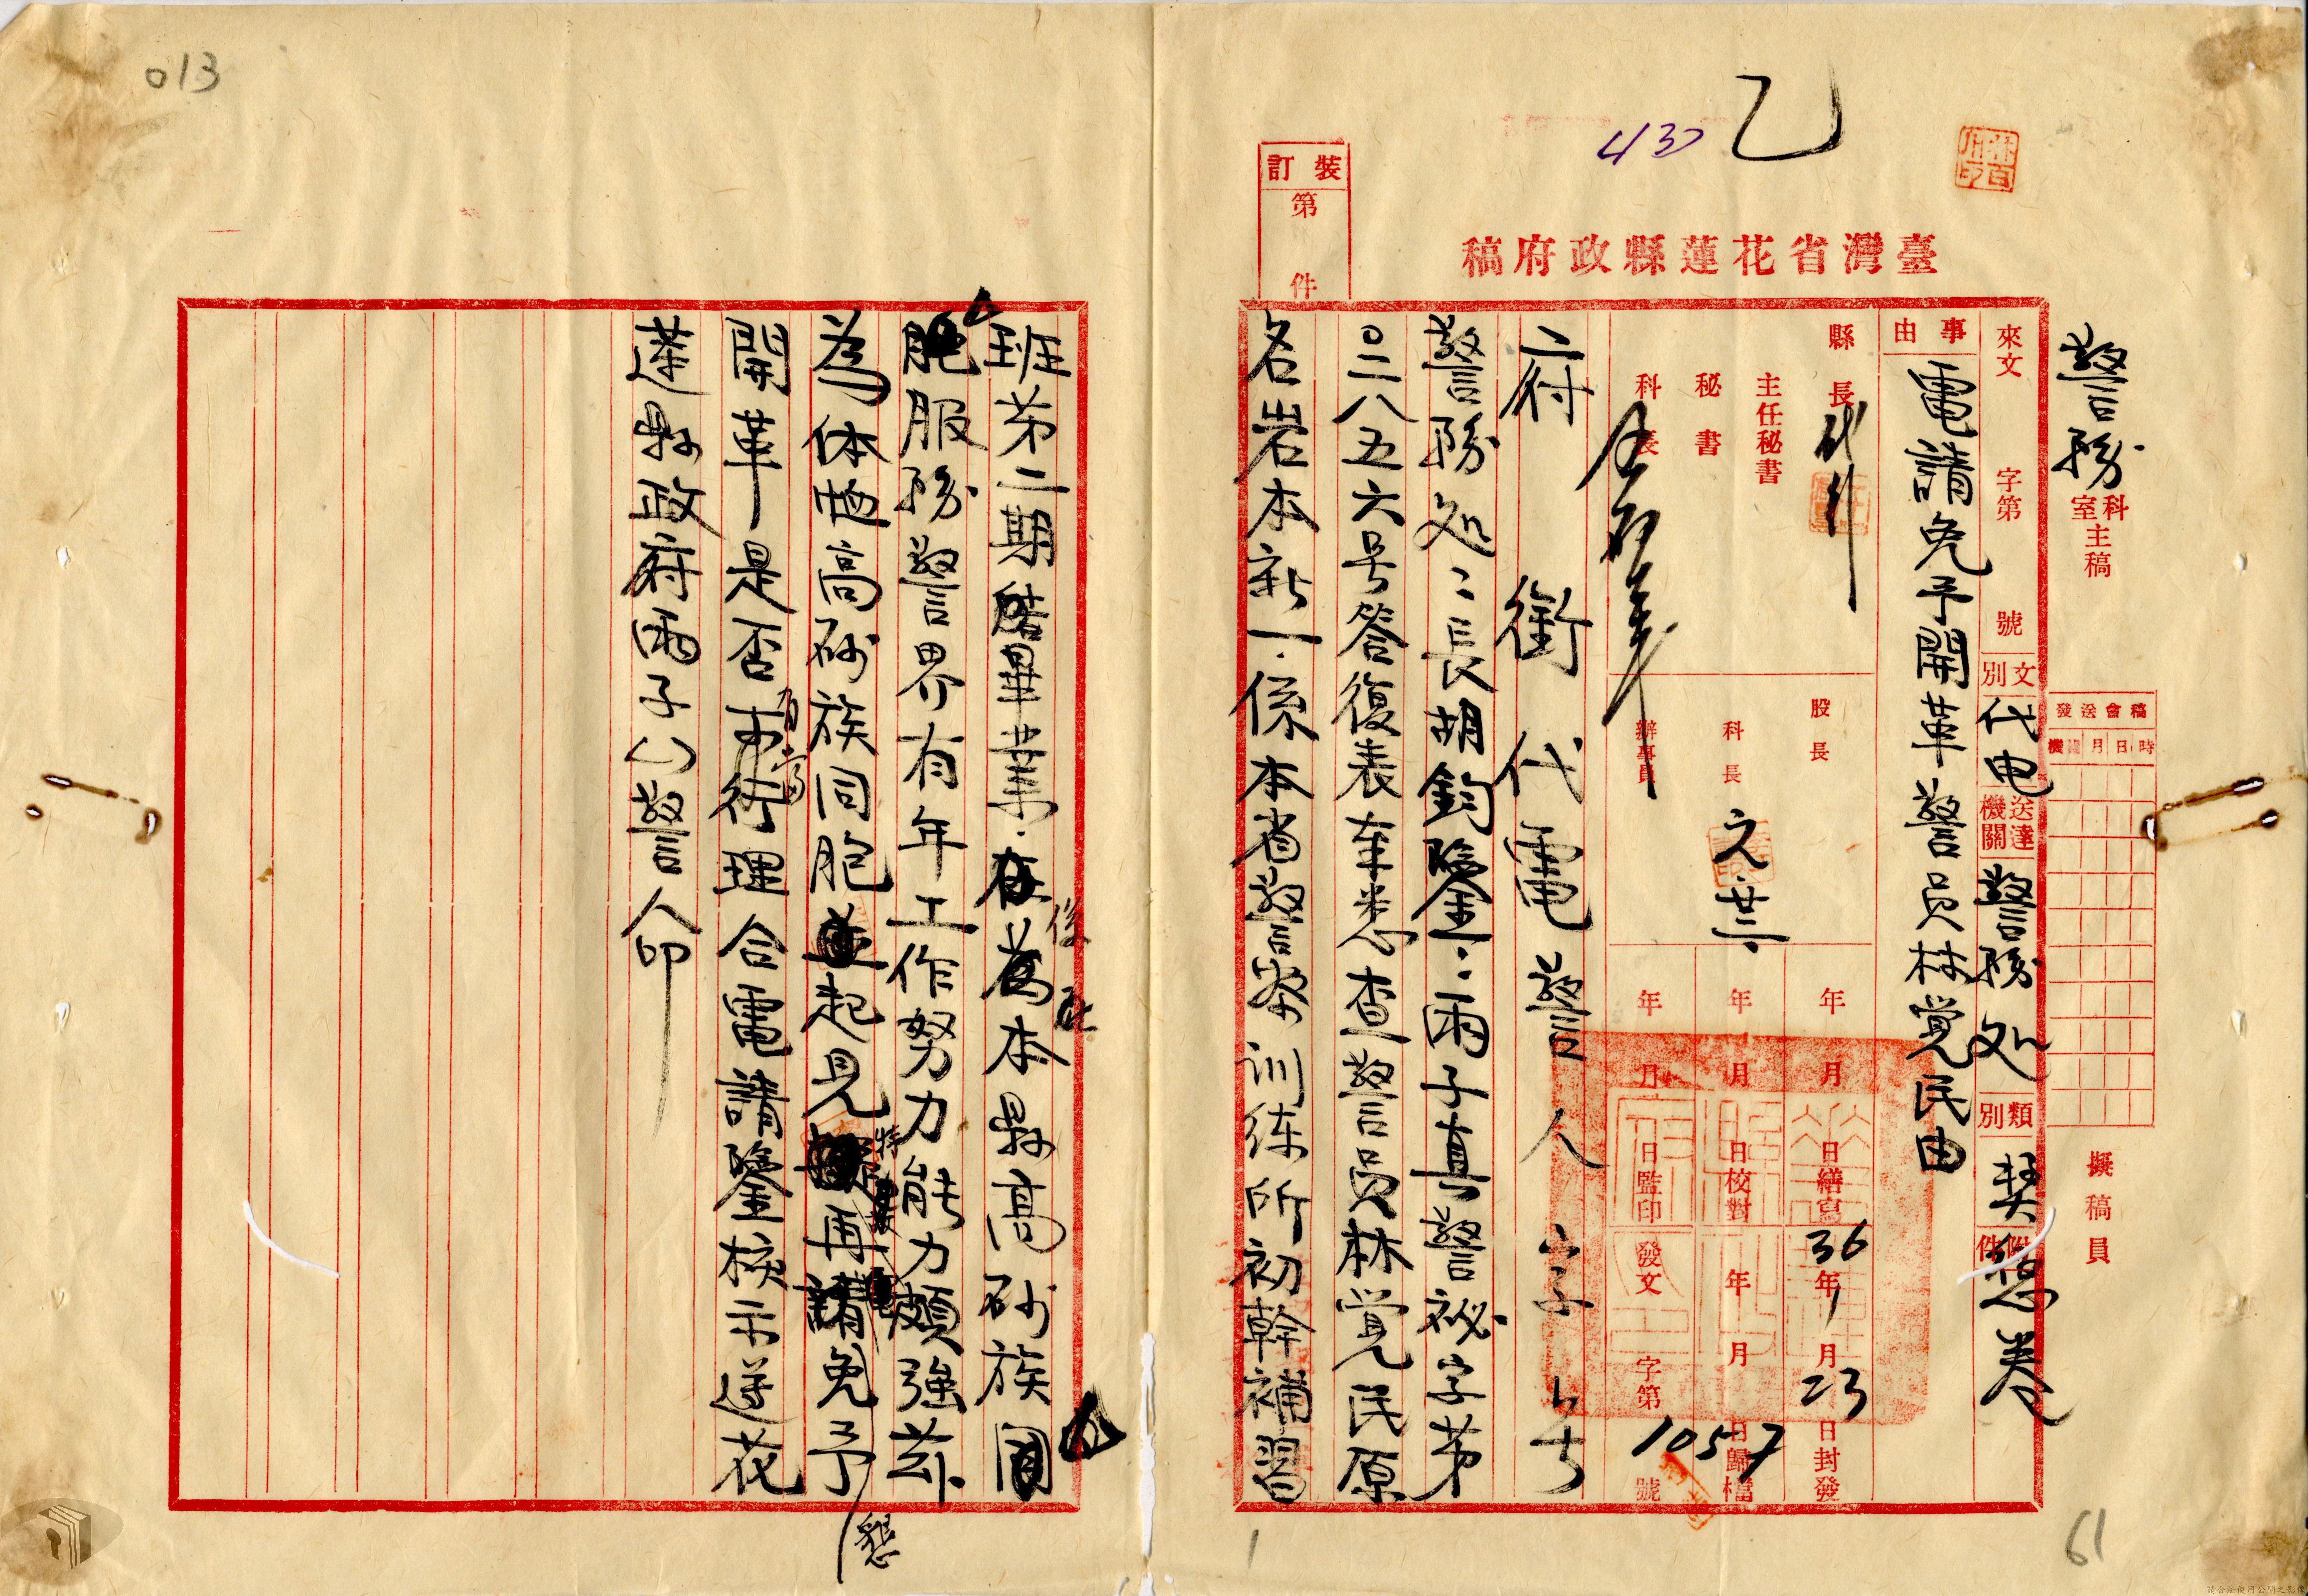 013
乙
430
臺灣省花蓮縣政府稿
裝訂
第 件
警務
科室主稿
擬稿員
稿會送發
時日月機關
來文 字第 號
文別 代电
送達機關 警務処
類別
附件
卷
事由
電請免予開革警員林覚民由
縣長
主任秘書
秘書
科長
股長
科長
辦事員
元廿三
年 月 日繕寫
年 月 日校對
年 月 日監印
36年1月23日封發
年 月 日歸檔
發文 字第 1057 號
府銜代電 警人字 号
警務処〻長胡鈞鑒：丙子真警祕字第
0二八五六号簽復表奉悉查警員林覚民原
名岩本新一係本省警察训练所初幹補習
班第二期結畢業
後
本縣高砂族同
胞服務警界有年工作努力能力頗強茲
為体恤高砂族同胞起見
特
再請免予
懇
開革是否有當
理合電請鑒核示遵花
蓮縣政府丙子 警人印
1
61